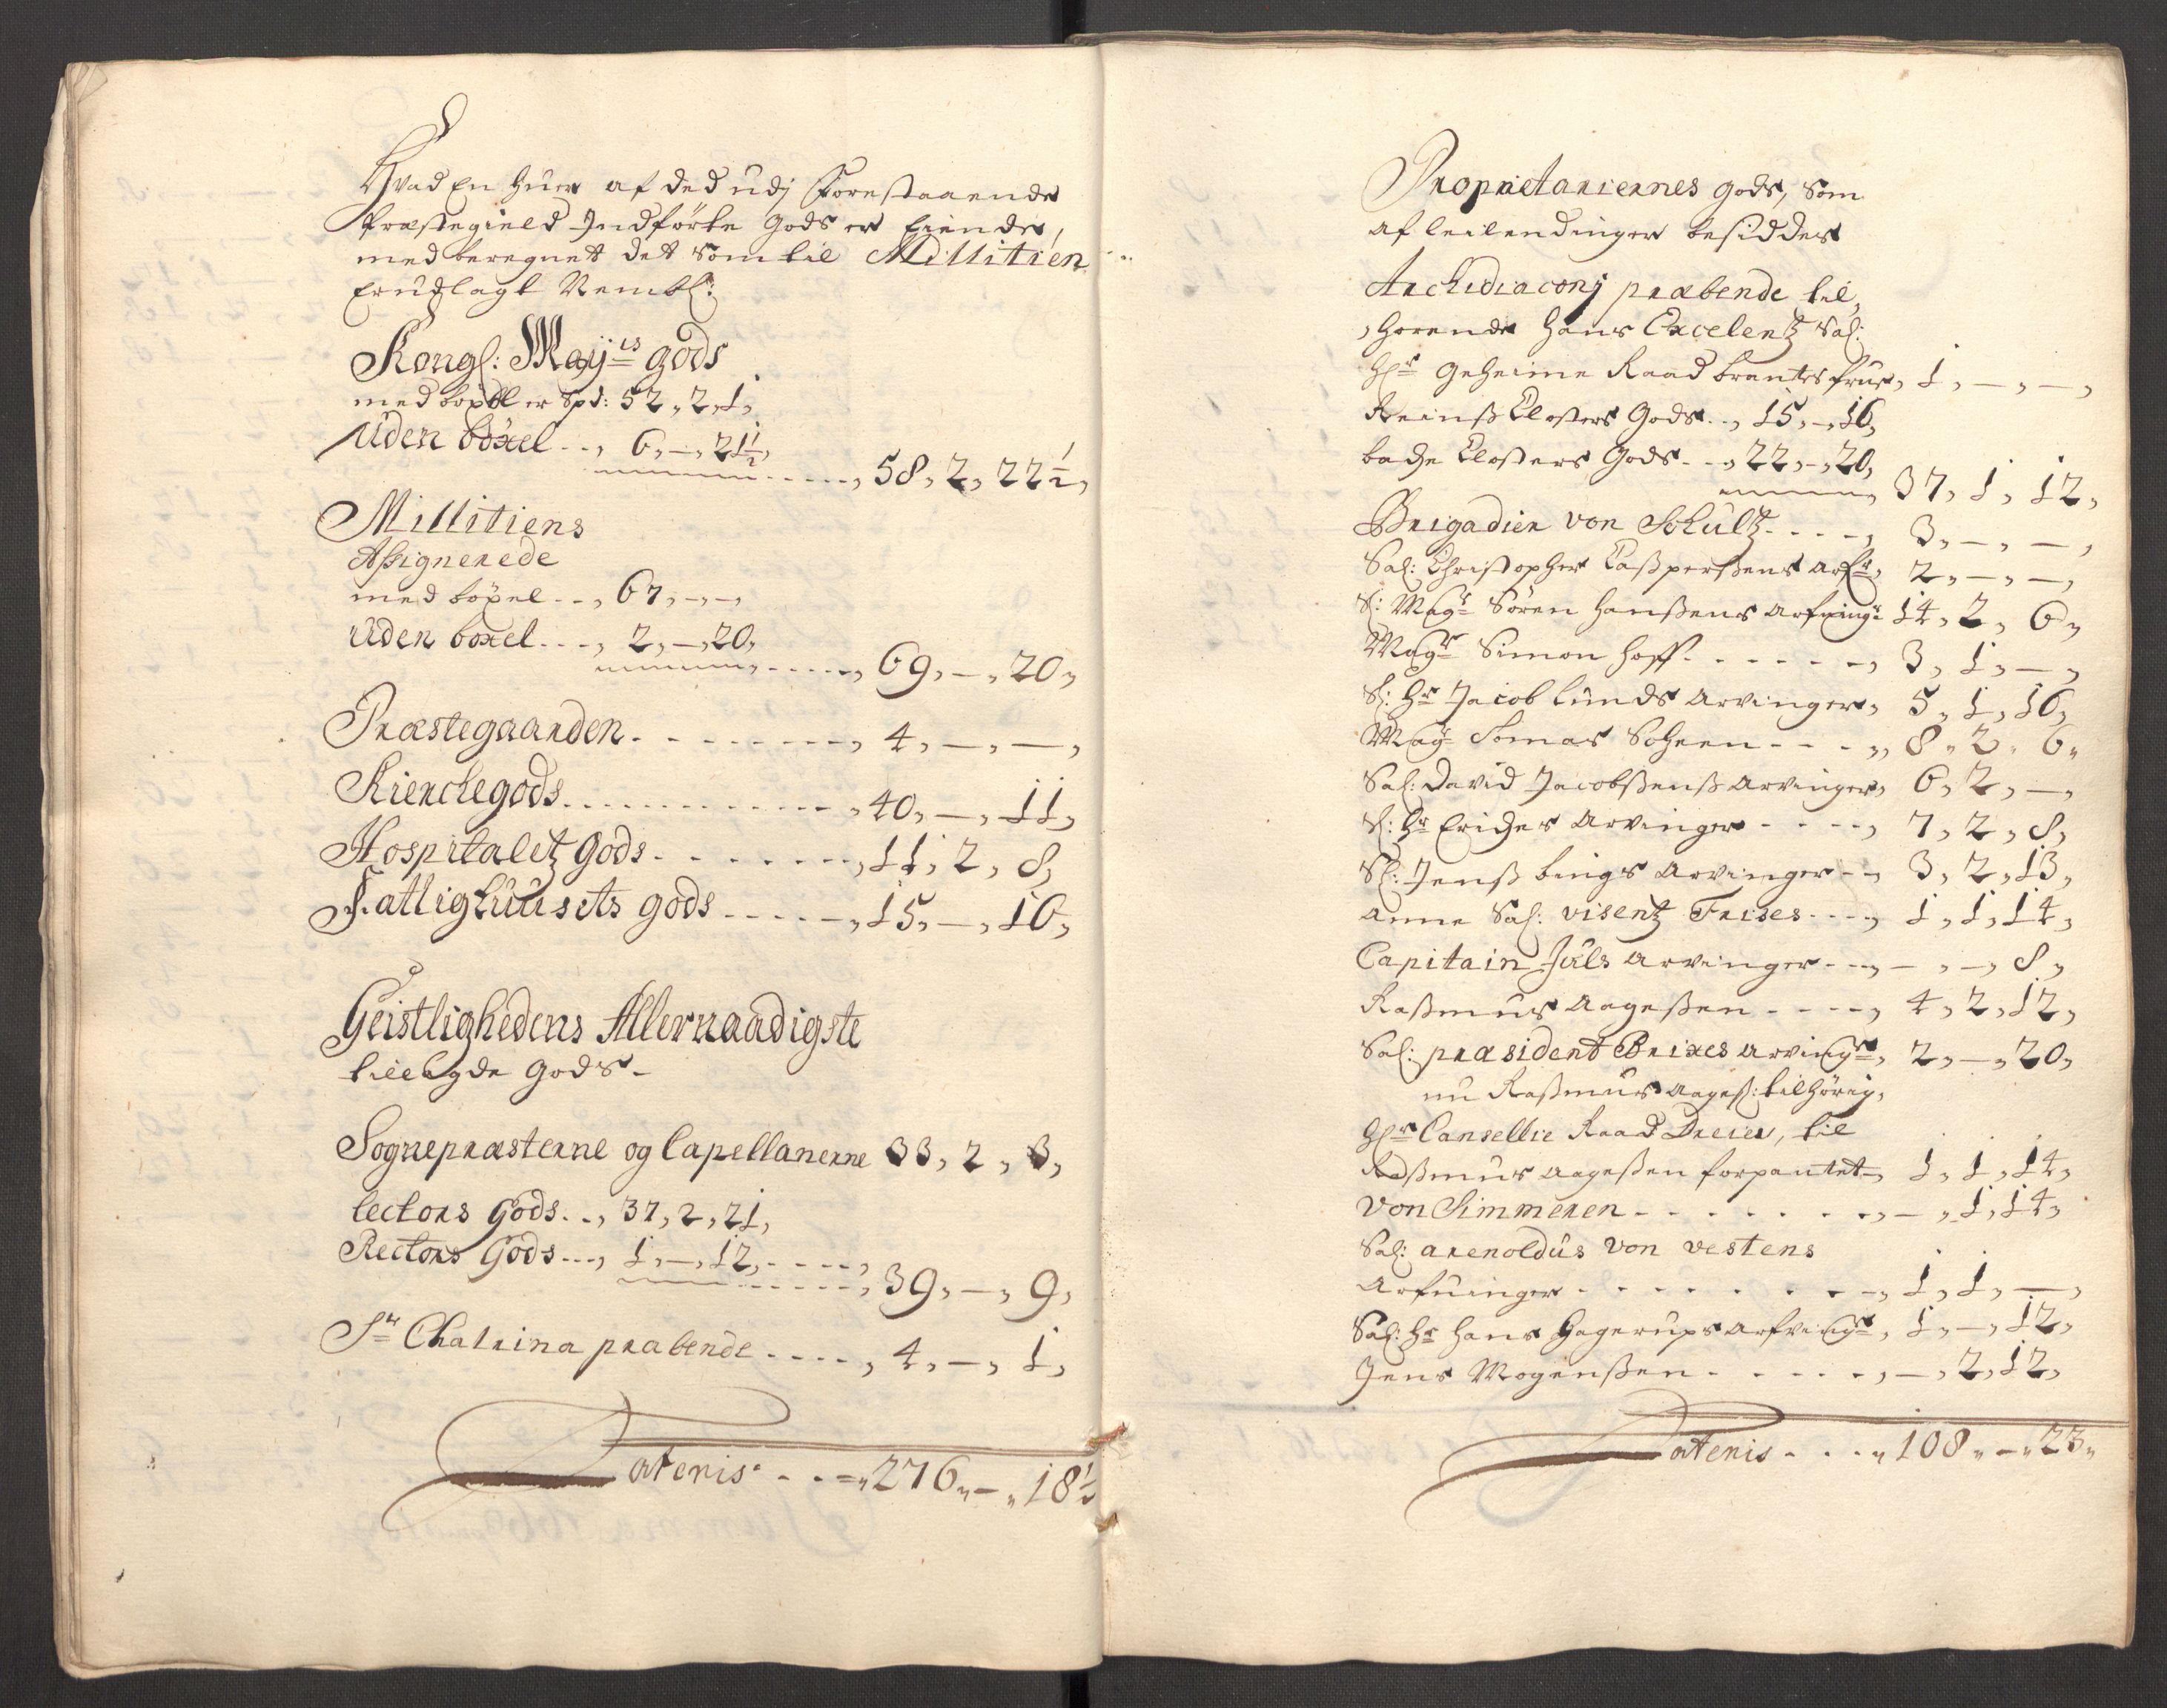 Hvad En huer af ded udj Forestaaende
Præstegield Indförte Gods er Eiendes,
med beregnet det som til Millitien
Erudlagt Nembl:
Kongl: Mayᵗˢ gods
med böxel er Spd: 52, 2, 1,
Uden böxel . . , 6, —, 21½,
58, 2, 22½,
Millitiens
Assignerede
med böxel . . , 67, —, —,
Uden boxel . . . , 2, —, 20,
69, —, 20,
Præstegaarden . . . . . . . . , 4, —, —,
Kierckegods . . . . . . . . . , 40, —, 11,
Hospitaletz gods . . . . . . . , 11, 2, 8,
Fattighuusets gods . . . . . , 15, —, 16,
Geistlighedens Allernaadigste
tillagde Gods —
Sognepræsterne og Capellanerne 33, 2, 3,
Lectors Gods . . , 37, 2, 21,
Rectors Gods . . . , 1, —, 12,
39, —, 9,
Sᵗ Chatrina præbende . . . . , 4, —, 1,
Lateris . . . 276, —, 18½
Proprietariernes gods, som
af leilendinger besiddes
Archidiaconj præbende til,
hörende Hans Excelentz Sal:
Hr Geheime Raad brantes frue, 1, —, —,
Reinss Closters Gods . . , 15, —, 16,
bache Closters Gods . . . , 22, —, 20,
37, 1, 12,
Brigadier von Schultz . . . . , 3, —, —,
Sal: Christopher Casspersens arfr, 2, —, —,
S: Magr Sören Hanssens arfving: 14, 2, 6,
Magr Simon Hoff . . . . . . , 3, 1, —,
S: Hr Jacob Lunds arvinger, 5, 1, 16,
Mag: Tomas Scheen . . . , 8, 2, 6,
Sal: David Jacobssenss arvinger, 6, 2, —,
S: Hr Eriches arvinger . . . . , 7, 2, 8,
Sl: Jenss bings arvinger . . , 3, 2, 13,
anne Sal: visentz Frises . . . , 1, 1, 14,
Capitain Juls arvinger . . , —, —, 8,
Rassmus aagessen . . . . , 4, 2, 12,
Sal: præsident Brixes arvingr, 2, —, 20,
nu Rassmus aagess: tilhörig,
Hr Cansellie Raad Dreier, til
Rassmus aagessen forpantet, 1, 1, 14,
von Simmeren . . . . . . . . , —, 1, 14,
Sal: arenoldus von vestens
arfuinger . . . . . . . . , 1, 1, —,
Sal: Hr Hans Hagerups arfvingr, 1, —, 12,
Jens Mogenssen . . . . . , —, 2, 12,
Lateris . . . 108, —, 23,